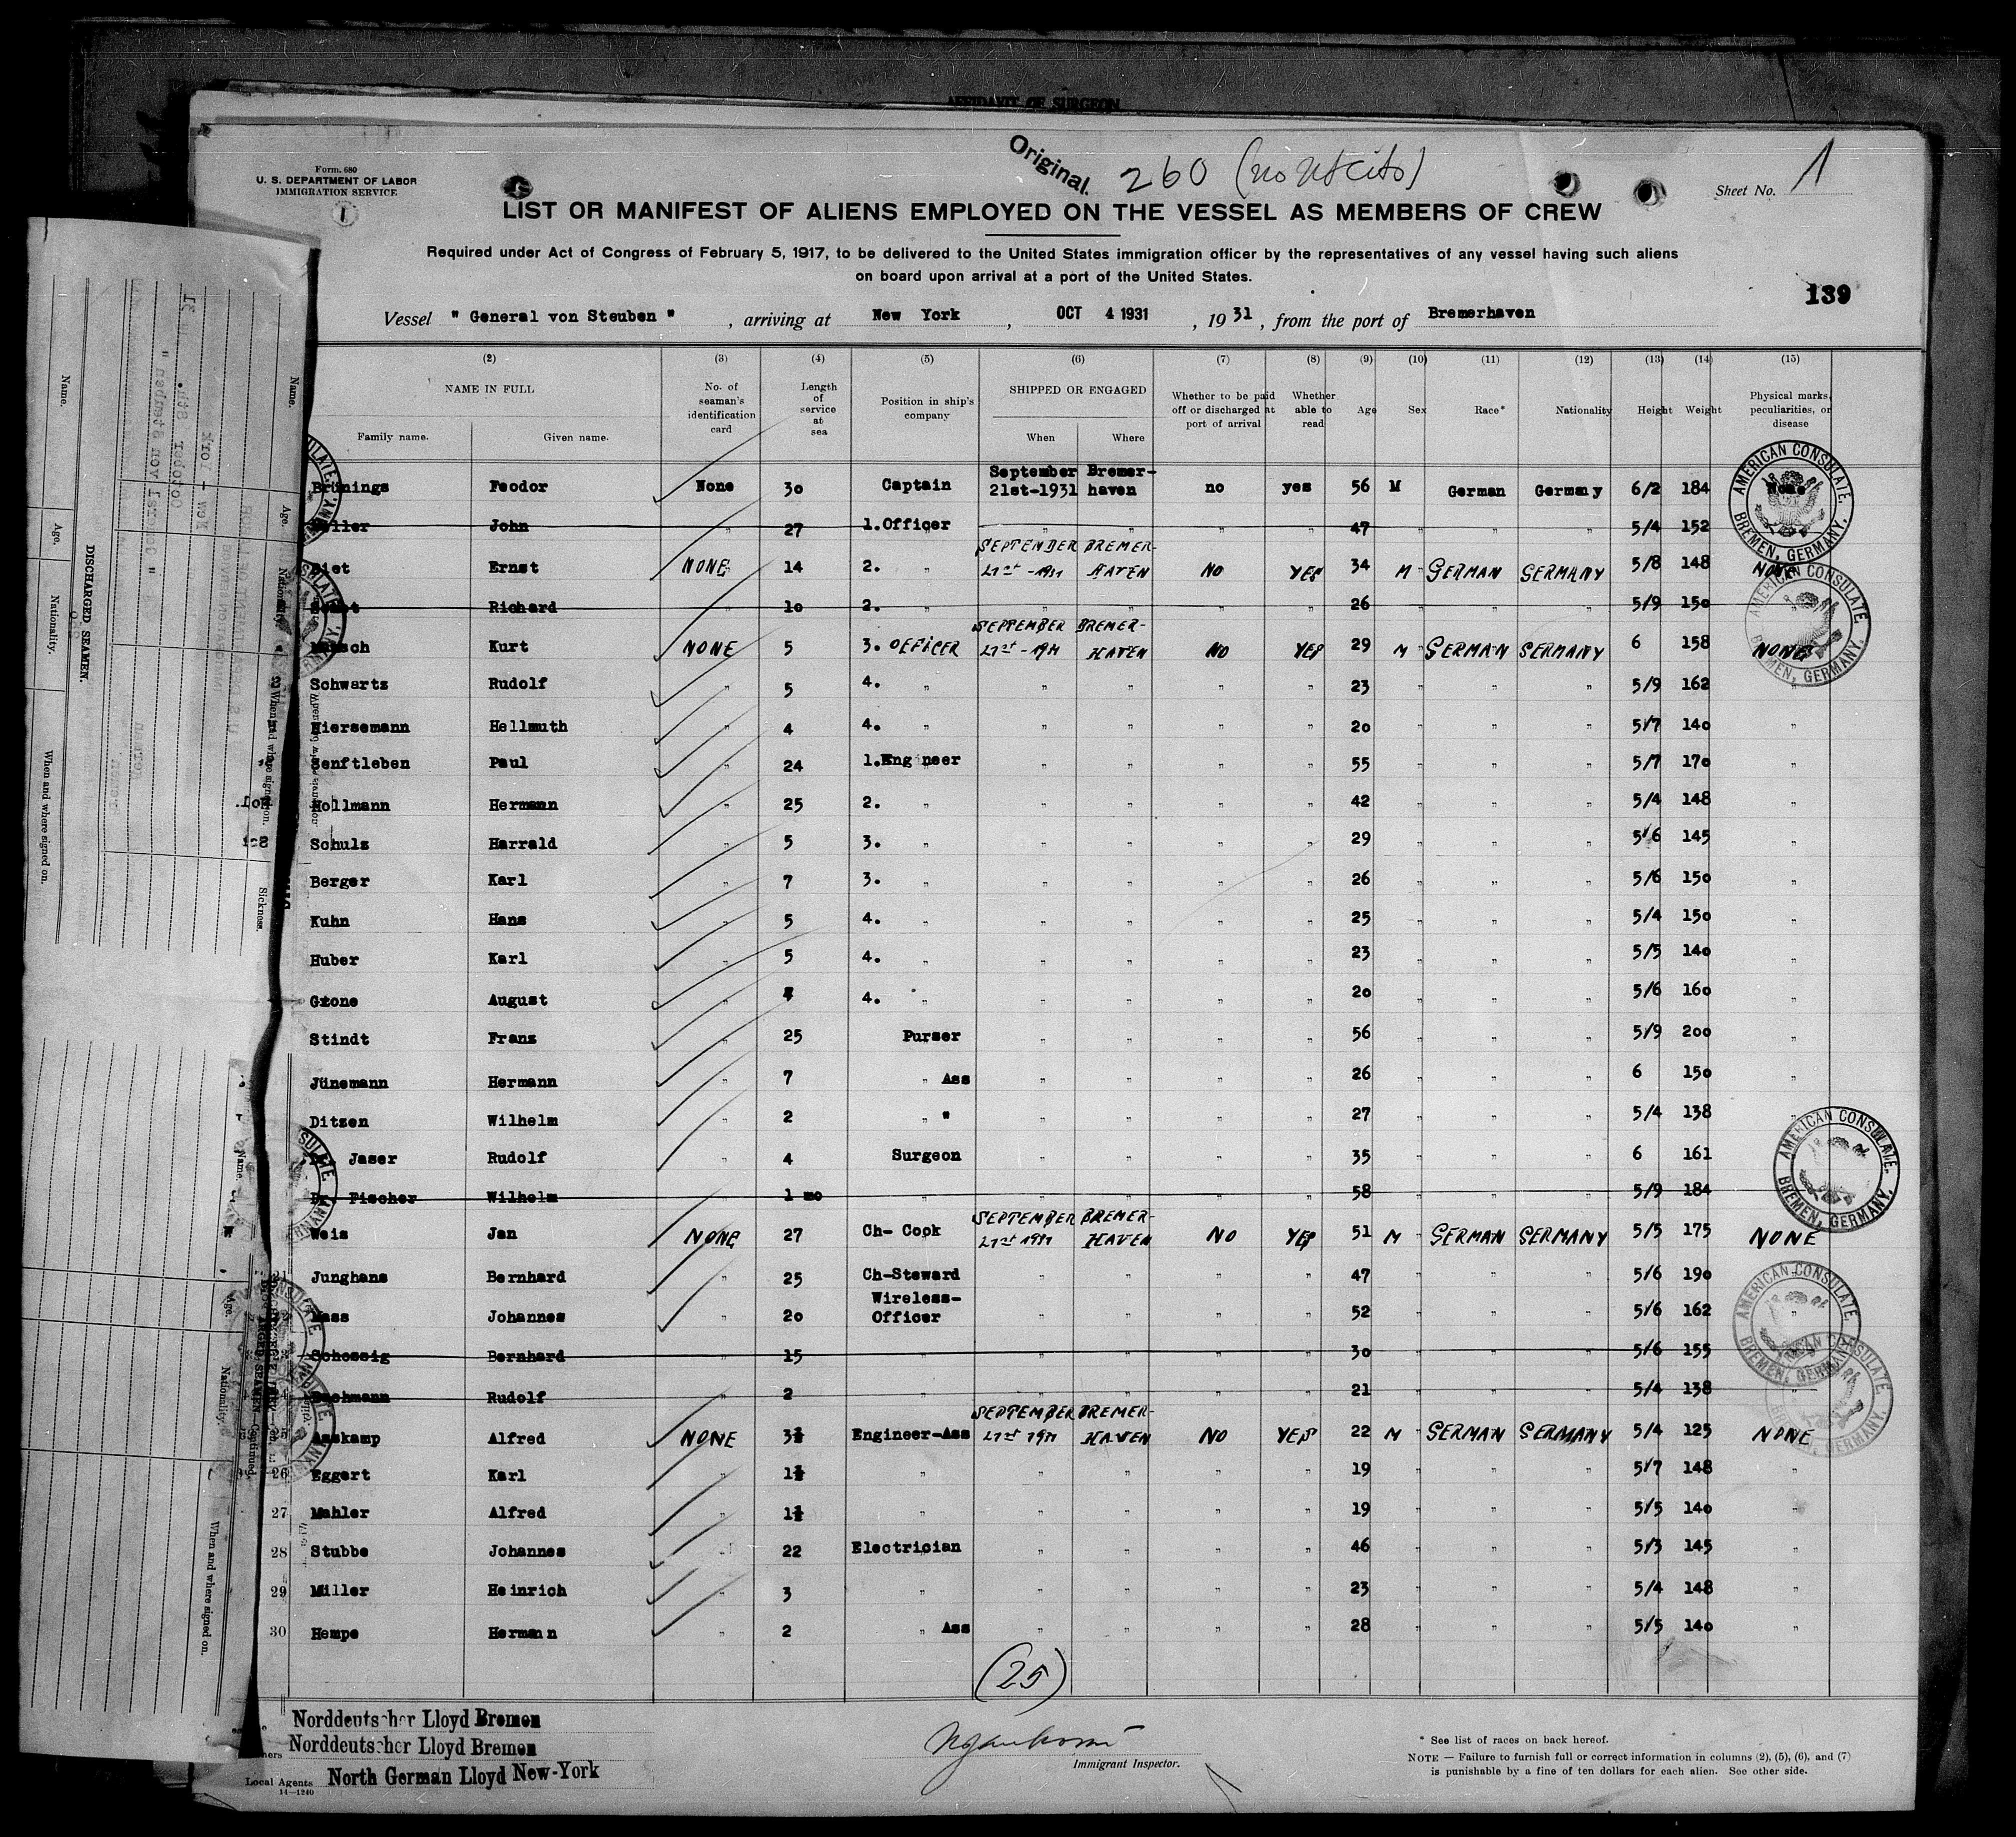 AFFIDAVIT OF SURGEON
Form 680
U. S. DEPARTMENT OF LABOR
IMMIGRATION SERVICE
Original.
260
Sheet No. 1
LIST OR MANIFEST OF ALIENS EMPLOYED ON THE VESSEL AS MEMBERS OF CREW
Required under Act of Congress of February 5, 1917, to be delivered to the United States immigration officer by the representatives of any vessel having such aliens
on board upon arrival at a port of the United States.
139
Vessel " General von Steuben ", arriving at New York, OCT 4 1931, 1931, from the port of Bremerhaven
(2) (3) (4) (5) (6) (7) (8) (9) (10) (11) (12) (13) (14) (15)
NAME IN FULL No. of seaman's identification card Length of service at sea Position in ship's company SHIPPED OR ENGAGED Whether to be paid off or discharged at port of arrival Whether able to read Age Sex Race* Nationality Height Weight Physical marks, peculiarities, or disease
Family name. Given name. When Where
Brünings Feodor None 30 Captain September 21st-1931 Bremer-haven no yes 56 M German Germany 6/2 184 None
John 27 1.Officer " " " " 47 " " " 5/4 152
Ernst NONE 14 2. " SEPTEMBER 21st-1931 BREMER-HAVEN NO YES 34 M GERMAN GERMANY 5/8 148 NONE
Richard " 10 2. " " " " " 26 " " " 5/9 150
Kurt NONE 5 3. OFFICER SEPTEMBER 21st-1931 BREMER-HAVEN NO YES 29 M GERMAN GERMANY 6 158 NONE
Schwartz Rudolf " 5 4. " " " " " 23 " " " 5/9 162 "
Hiersemann Hellmuth " 4 4. " " " " " 20 " " " 5/7 140 "
Senftleben Paul " 24 1.Engineer " " " " 55 " " " 5/7 170 "
Hollmann Hermann " 25 2. " " " " " 42 " " " 5/4 148 "
Schulz Harrald " 5 3. " " " " " 29 " " " 5/6 145 "
Berger Karl " 7 3. " " " " " 26 " " " 5/6 150 "
Kuhn Hans " 5 4. " " " " " 25 " " " 5/4 150 "
Huber Karl " 5 4. " " " " " 23 " " " 5/5 140 "
Grone August " 4. " " " " " 20 " " " 5/6 160 "
Stindt Franz " 25 Purser " " " " 56 " " " 5/9 200 "
Jünemann Hermann " 7 " Ass " " " " 26 " " " 6 150 "
Ditzen Wilhelm " 2 " " " " " " 27 " " " 5/4 138 "
Dr. Jaser Rudolf " 4 Surgeon " " " " 35 " " " 6 161
Dr. Fischer Wilhelm " 1 mo " " " " " 58 " " " 5/9 184
Weis Jan NONE 27 Ch- Cook SEPTEMBER 21st 1931 BREMER-HAVEN NO YES 51 M GERMAN GERMANY 5/5 175 NONE
21 Junghans Bernhard " 25 Ch-Steward " " " " 47 " " " 5/6 190 "
Johannes " 20 Wireless-Officer " " " " 52 " " " 5/6 162 "
Schossig Bernhard 15 " " " " " 30 " " " 5/6 155
Rudolf " 2 " " " " " 21 " " " 5/4 138
25 Alfred NONE 3½ Engineer-Ass SEPTEMBER 21st 1931 BREMER-HAVEN NO YES 22 M GERMAN GERMANY 5/4 125 NONE
26 Eggert Karl " 1½ " " " " " 19 " " " 5/7 148 "
27 Mahler Alfred " 1½ " " " " " 19 " " " 5/5 140 "
28 Stubbe Johannes " 22 Electrician " " " " 46 " " " 5/3 145 "
29 Miller Heinrich " 3 " " " " " 23 " " " 5/4 148 "
30 Hempe Hermann " 2 " Ass " " " " 28 " " " 5/5 140 "
(25)
AMERICAN CONSULATE. BREMEN, GERMANY.
AMERICAN CONSULATE. BREMEN, GERMANY.
AMERICAN CONSULATE. BREMEN, GERMANY.
AMERICAN CONSULATE. BREMEN, GERMANY.
Norddeutscher Lloyd Bremen
Norddeutscher Lloyd Bremen
Local Agents North German Lloyd New-York
14—1240
Immigrant Inspector.
* See list of races on back hereof.
NOTE — Failure to furnish full or correct information in columns (2), (5), (6), and (7)
is punishable by a fine of ten dollars for each alien. See other side.
DISCHARGED SEAMEN.
Name. Age. Nationality. When and where signed on.
Name. Age. Nationality. When and where signed on.
Sickness.
Name. Age. Nationality. When and where signed on.